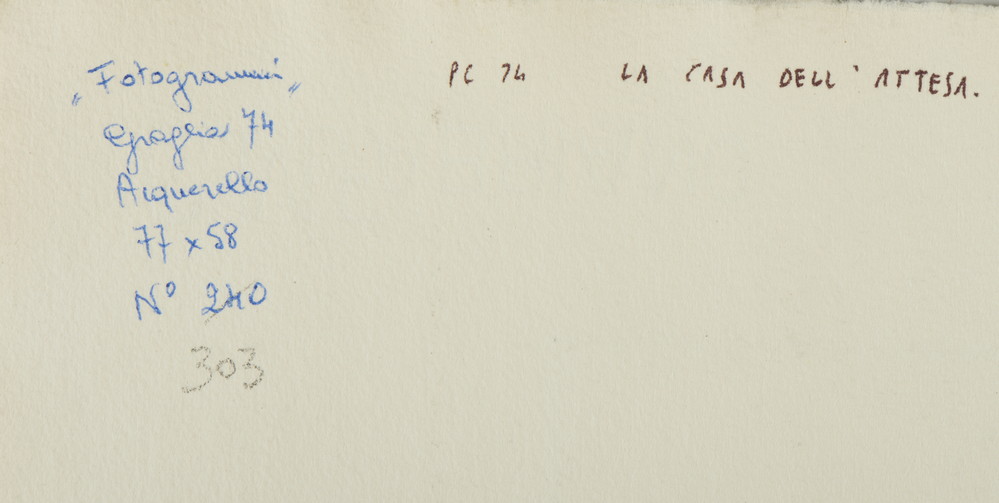 „Fotogrammi„
Graglia 74
Acquerello
77 x 58
N° 240
303
PC 74 LA CASA DELL'ATTESA.